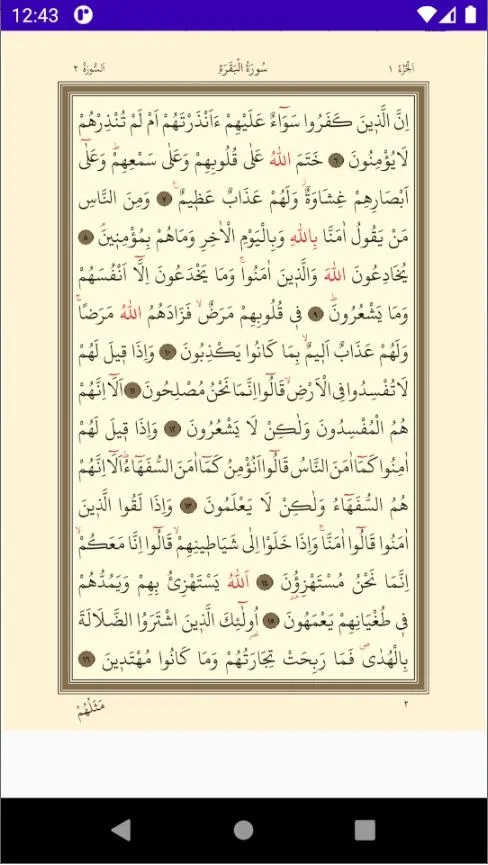 12:43
اَلْجُزْءُ ١
سُورَةُ الْبَقَرَةِ
اَلسُّورَةُ ٢
اِنَّ الَّذ۪ينَ كَفَرُوا سَوَٓاءٌ عَلَيْهِمْ ءَاَنْذَرْتَهُمْ اَمْ لَمْ تُنْذِرْهُمْ
لَا يُؤْمِنُونَ ٦ خَتَمَ اللّٰهُ عَلٰى قُلُوبِهِمْ وَعَلٰى سَمْعِهِمْۜ وَعَلٰٓى
اَبْصَارِهِمْ غِشَاوَةٌۘ وَلَهُمْ عَذَابٌ عَظ۪يمٌ۟ ٧ وَمِنَ النَّاسِ
مَنْ يَقُولُ اٰمَنَّا بِاللّٰهِ وَبِالْيَوْمِ الْاٰخِرِ وَمَاهُمْ بِمُؤْمِن۪ينَۢ ٨
يُخَادِعُونَ اللّٰهَ وَالَّذ۪ينَ اٰمَنُواۚ وَمَا يَخْدَعُونَ اِلَّٓا اَنْفُسَهُمْ
وَمَا يَشْعُرُونَۜ ٩ ف۪ي قُلُوبِهِمْ مَرَضٌۙ فَزَادَهُمُ اللّٰهُ مَرَضًاۚ
وَلَهُمْ عَذَابٌ اَل۪يمٌۙ بِمَا كَانُوا يَكْذِبُونَ ١٠ وَاِذَا ق۪يلَ لَهُمْ
لَا تُفْسِدُوا فِي الْاَرْضِۙ قَالُٓوا اِنَّمَا نَحْنُ مُصْلِحُونَ ١١ اَلَٓا اِنَّهُمْ
هُمُ الْمُفْسِدُونَ وَلٰكِنْ لَا يَشْعُرُونَ ١٢ وَاِذَا ق۪يلَ لَهُمْ
اٰمِنُوا كَمَٓا اٰمَنَ النَّاسُ قَالُٓوا اَنُؤْمِنُ كَمَٓا اٰمَنَ السُّفَهَٓاءُۜ اَلَٓا اِنَّهُمْ
هُمُ السُّفَهَٓاءُ وَلٰكِنْ لَا يَعْلَمُونَ ١٣ وَاِذَا لَقُوا الَّذ۪ينَ
اٰمَنُوا قَالُٓوا اٰمَنَّاۚ وَاِذَا خَلَوْا اِلٰى شَيَاط۪ينِهِمْۙ قَالُٓوا اِنَّا مَعَكُمْۙ
اِنَّمَا نَحْنُ مُسْتَهْزِؤُ۫نَ ١٤ اَللّٰهُ يَسْتَهْزِئُ بِهِمْ وَيَمُدُّهُمْ
ف۪ي طُغْيَانِهِمْ يَعْمَهُونَ ١٥ اُو۬لٰٓئِكَ الَّذ۪ينَ اشْتَرَوُا الضَّلَالَةَ
بِالْهُدٰىۖ فَمَا رَبِحَتْ تِجَارَتُهُمْ وَمَا كَانُوا مُهْتَد۪ينَ ١٦
٢
مَثَلُهُمْ